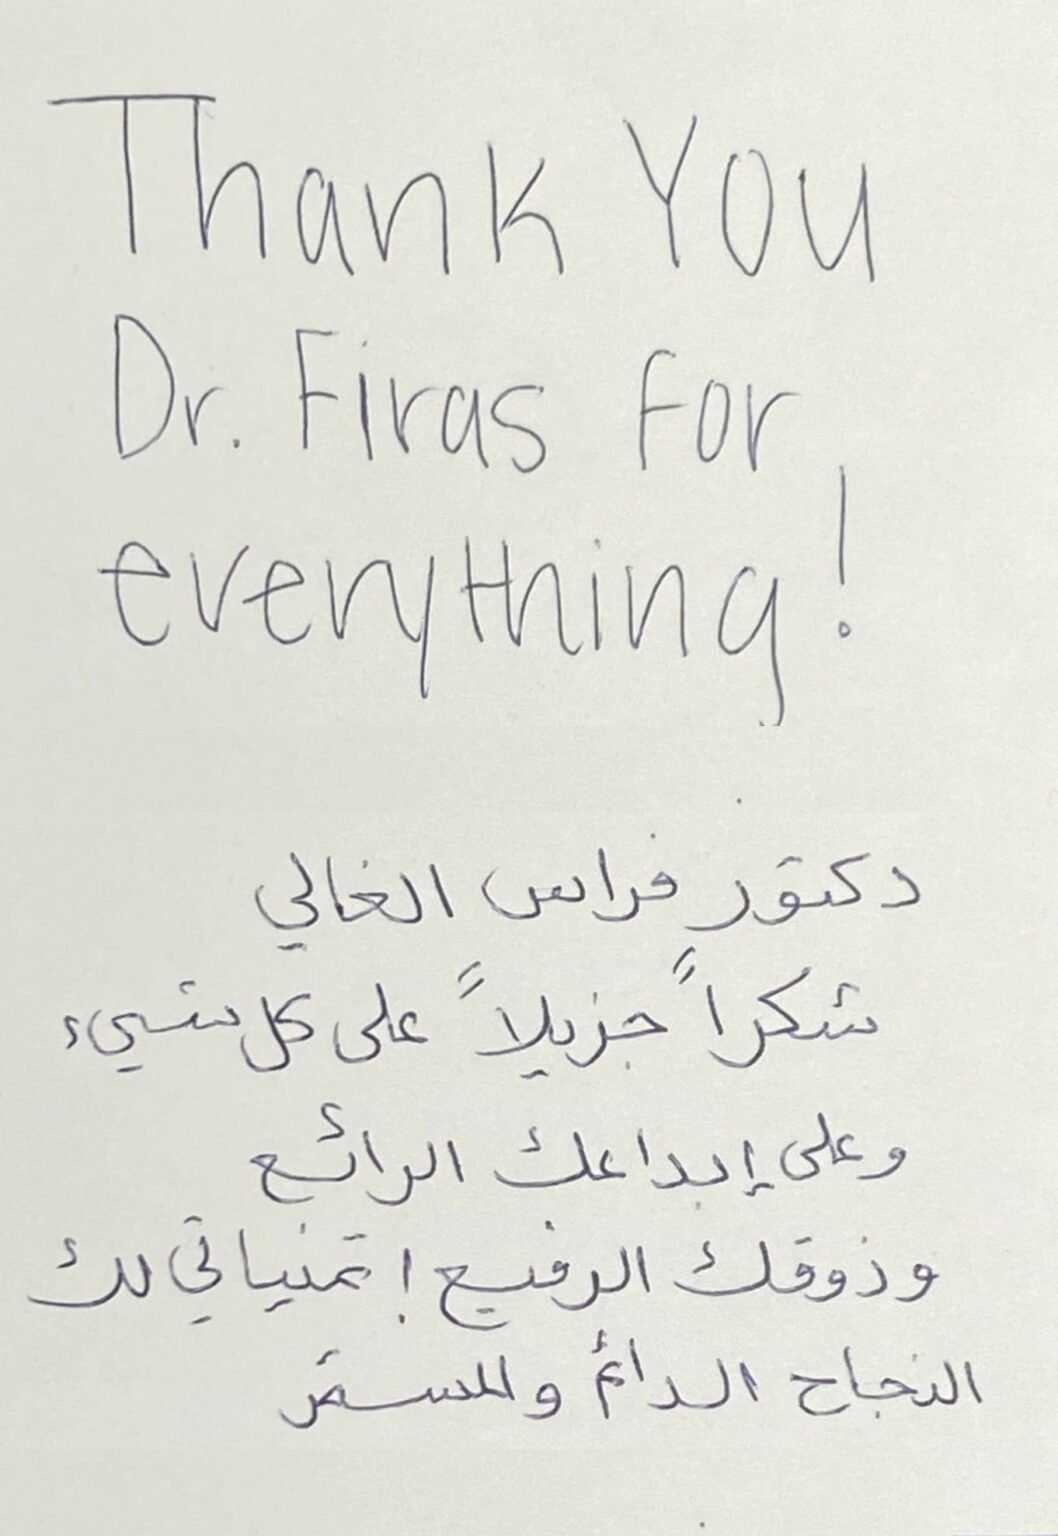 Thank You
Dr. Firas For
everything!
دكتور فراس الغالي
شكراً جزيلاً على كل شيء
وعلى إبداعك الرائع
وذوقك الرفيع! تمنياتي لك
النجاح الدائم والمستمر